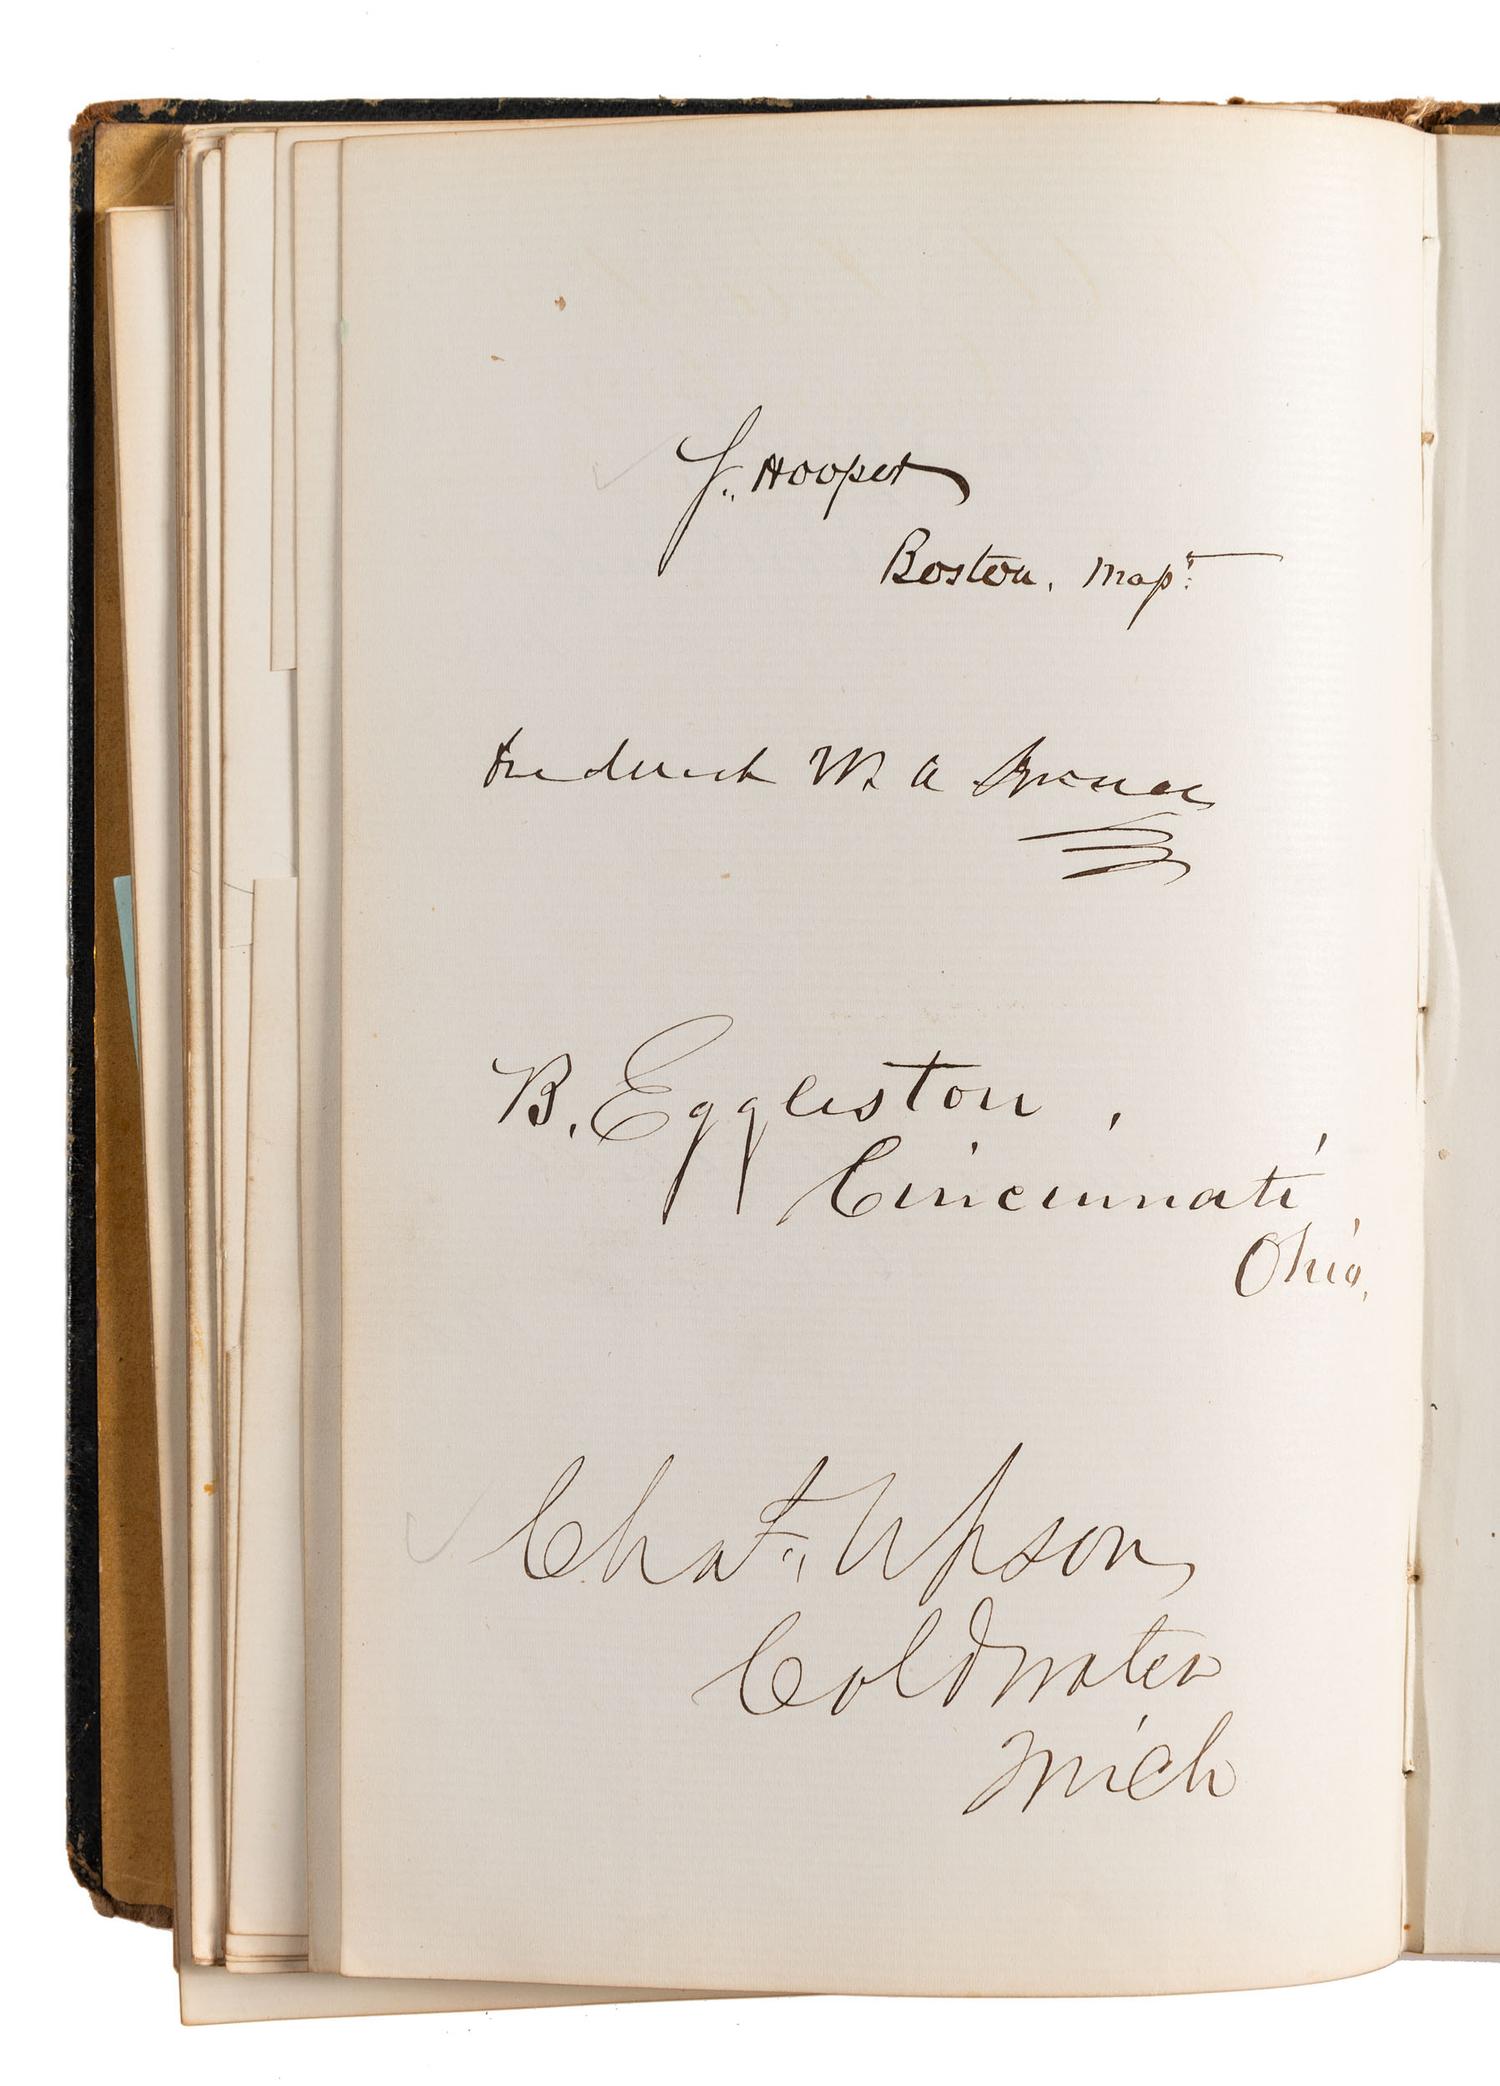 S. Hooper
Boston. Mass.
Frederick
B. Eggleston,
Cincinnati
Ohio,
Chas. Upson
Coldwater
Mich